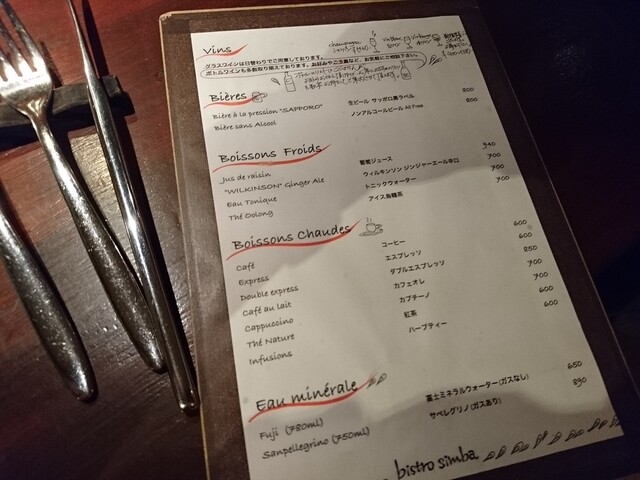 Vins
champagne
グラスワインは日替わりでご用意しております。
ボトルワインも多数取り揃えております。お好みやご予算など、お気軽にご相談下さい。
Bières
Bière à la pression "SAPPORO" 生ビール サッポロ黒ラベル 800
Bière sans Alcool ノンアルコールビール All Free 800
Boissons Froids
Jus de raisin 葡萄ジュース 940
"WILKINSON" Ginger Ale ウィルキンソン ジンジャーエール辛口 700
Eau Tonique トニックウォーター 700
Thé Oolong アイス烏龍茶 700
Boissons Chaudes
Café コーヒー 600
Express エスプレッソ 600
Double express ダブルエスプレッソ 850
Café au lait カフェオレ 700
Cappuccino カプチーノ 700
Thé Nature 紅茶 600
Infusions ハーブティー 600
Eau minérale
Fuji (780ml) 富士ミネラルウォーター(ガスなし) 650
Sanpellegrino (750ml) サンペレグリノ(ガスあり) 890
bistro simba